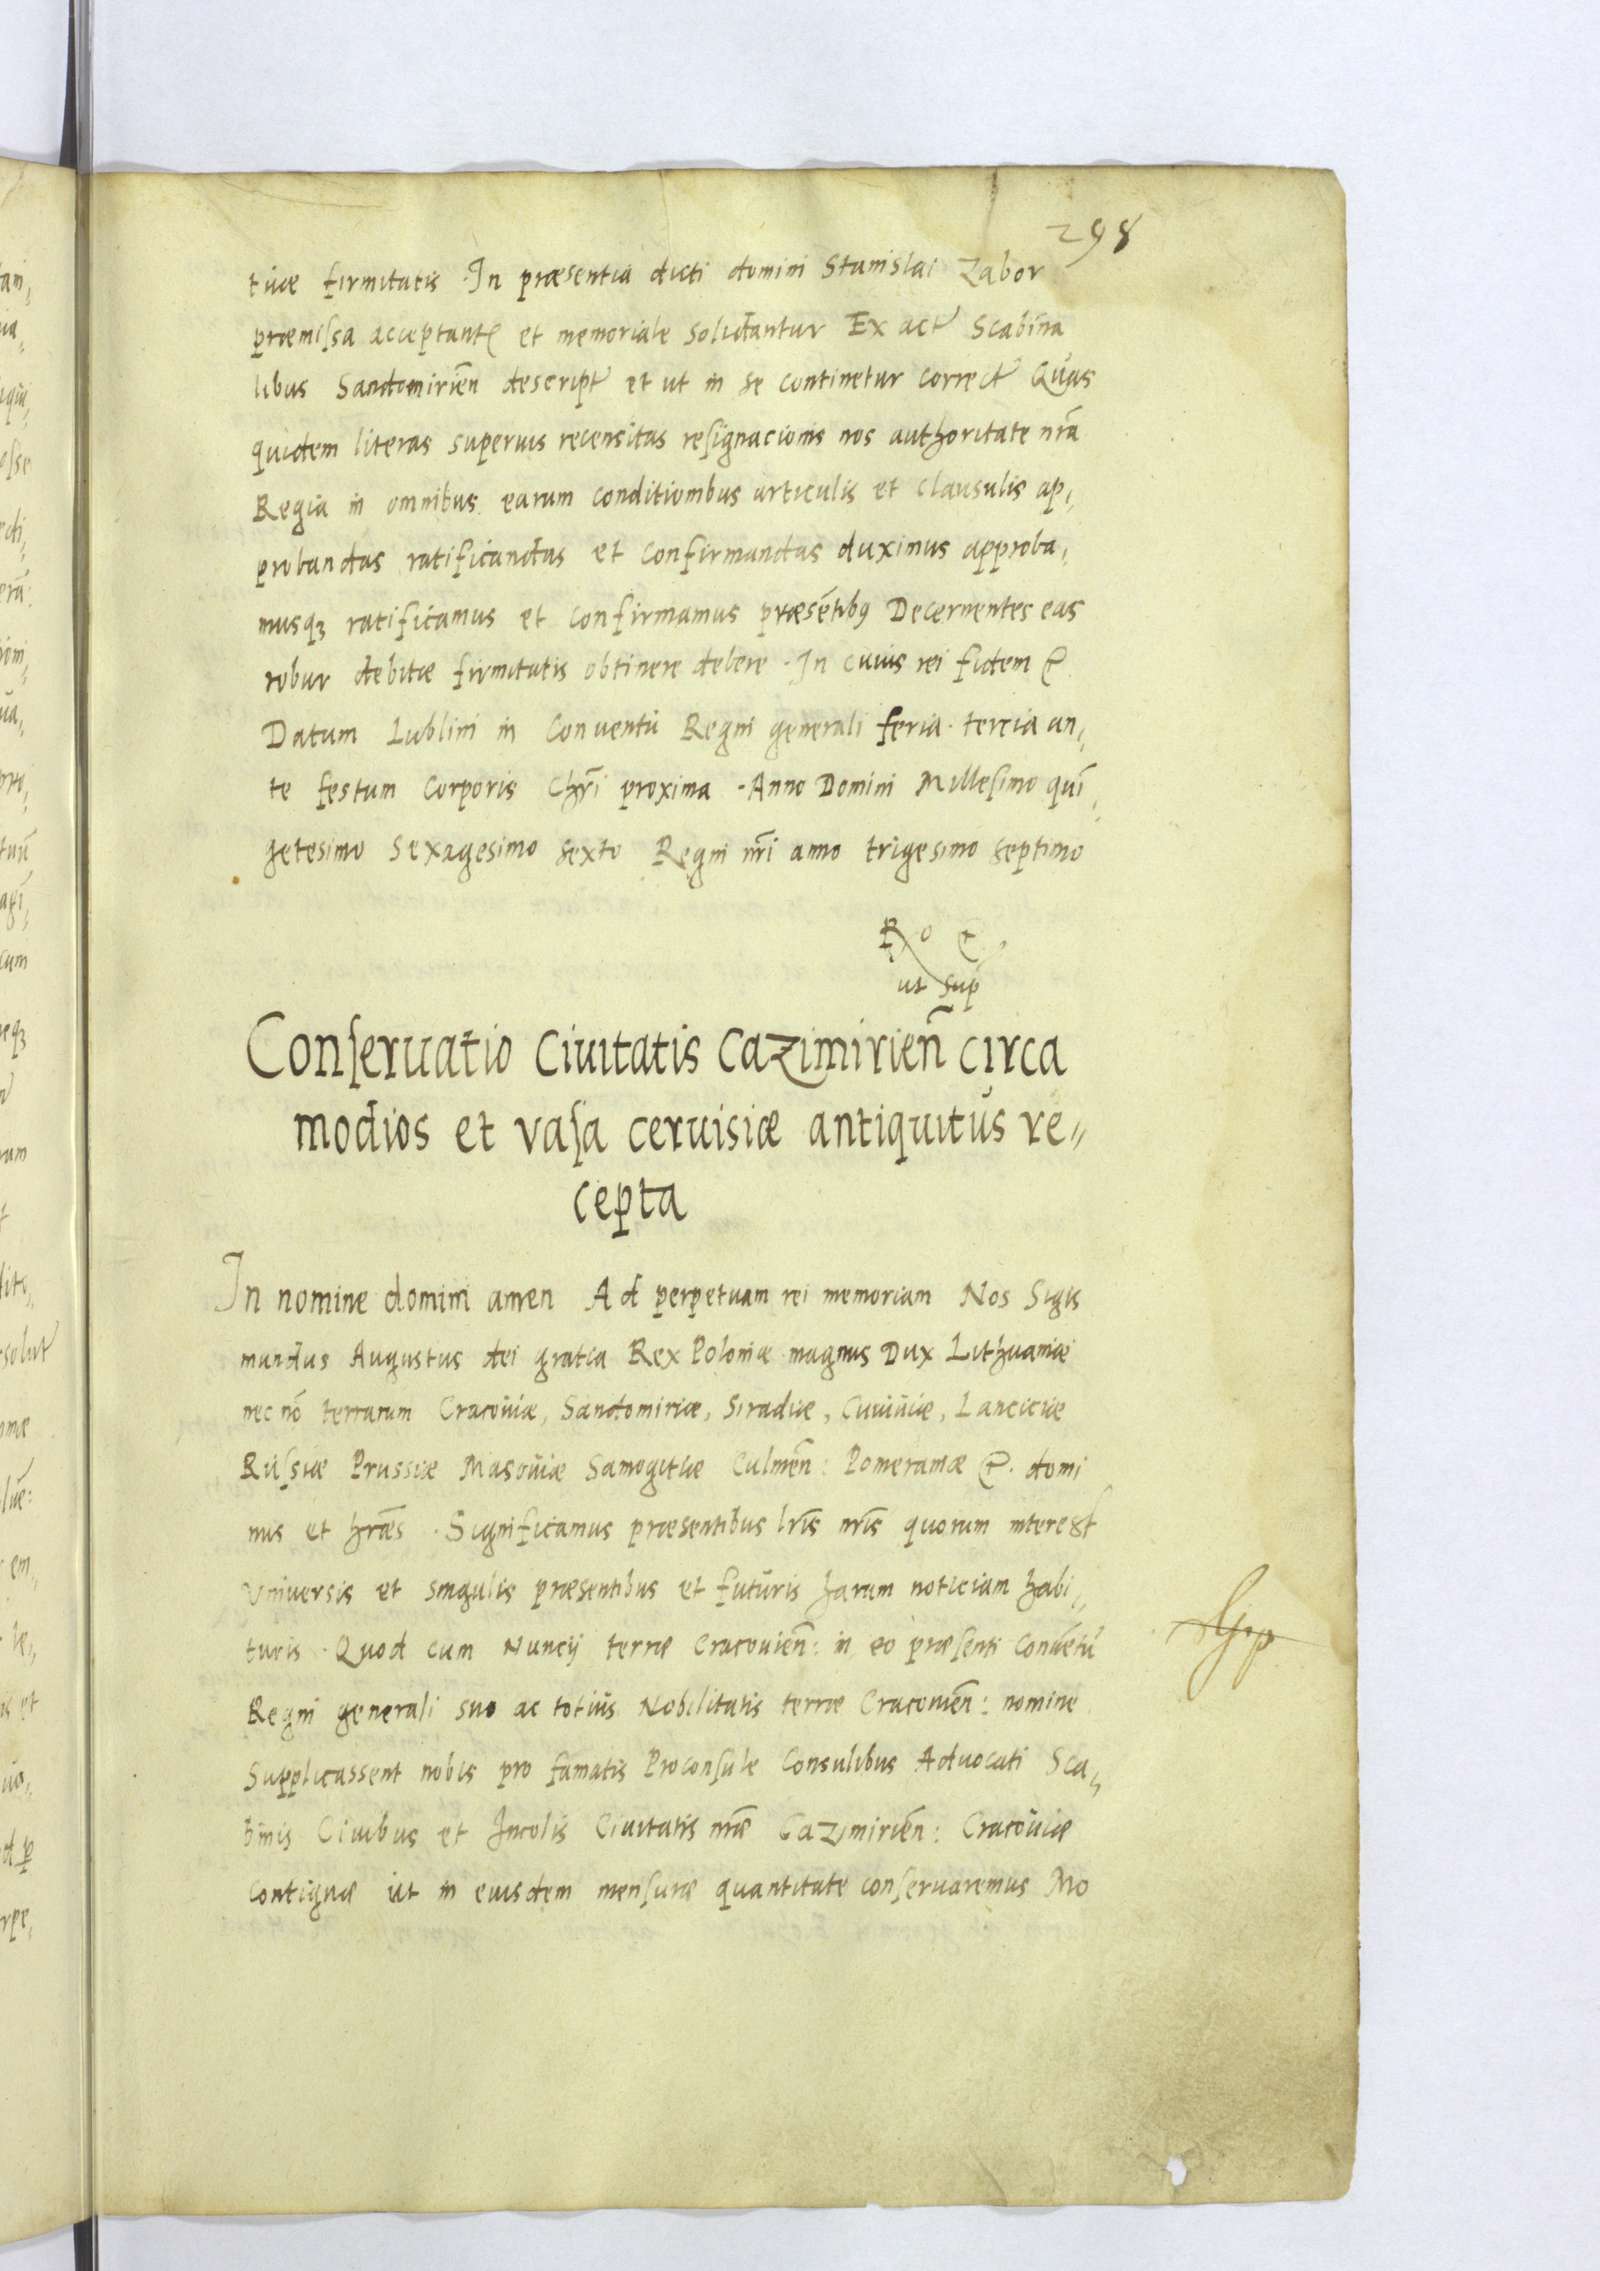 298
tuæ firmitatis · In præsentia dicti domini Stanislai Zabor
præmiſsa acceptantꝭ et memoriale solidantur Ex act~ Scabina
libus Sandomirień descript~ et ut in se continetur correct~ Quas
quidem literas superius recensitas reſignacionis nos authoritate nrã
Regia in omnibus earum conditionibus articulis et clausulis ap,,
probandas ratificandas et confirmandas duximus approba,,
musqʒ ratificamus et confirmamus præsẽtibꝰ Decernentes eas
robur debitæ firmitatis obtinere debere · In cuius rei fidem &
Datum Lublini in Conventu Regni generali feria tercia an,,
te festum Corporis Chrĩ proxima · Anno Domini Milleſimo quĩ,,
getesimo Sexagesimo sexto Regni nrĩ anno trigesimo septimo
Rº &
ut sup
Conſeruatio Ciuitatis Cazimirień circa
modios et vaſa ceruisiæ antiquitus re,,
cepta
In nomine domini amen Ad perpetuam rei memoriam Nos Sigis
mundus Augustus dei gratia Rex Poloniæ magnus Dux Lithuaniæ
nec nõ terrarum Cracouiæ, Sandomiriæ, Siradiæ, Cuiauiæ, Lanciciæ
Ruſsiæ Prussiæ Masouiæ Samogitiæ Culmeń: Pomeraniæ &. domi
nus et hræ̃s · Significamus præsentibus lrĩs nrĩs quorum interest
Vniversis et singulis præsentibus et futuris harum noticiam habi,,
turis · Quod cum Nuncij terræ Cracouień: in eo præſenti Convẽtu
Regni generali suo ac totius Nobilitatis terræ Cracouień: nomine
Supplicassent nobis pro famatis Proconſule Consulibus Advocati Sca,,
binis Ciuibus et Incolis Ciuitatis nræ̃ Cazimirień: Cracouiæ
contiguæ ut in eiusdem menſuræ quantitate conſeruaremus Mo